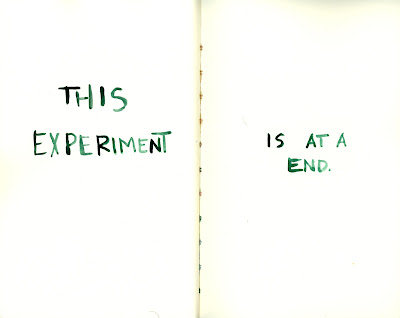 THIS
EXPERIMENT
IS AT A
END.